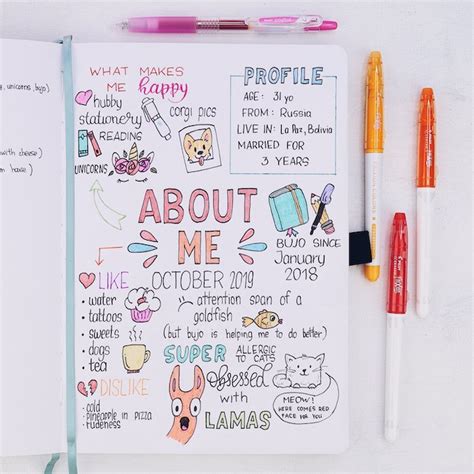 unicorns, bujo)
with cheese)
is home)
WHAT MAKES
ME happy
hubby
stationery
READING
UNICORNS
corgi pics
PROFILE
AGE: 31 yo
FROM: Russia
LIVE IN: La Paz, Bolivia
MARRIED FOR
3 YEARS
ABOUT
ME
OCTOBER 2019
BUJO SINCE
January
2018
LIKE
• water
• tattoos
• sweets
• dogs
• tea
attention span of a
goldfish
(but bujo is helping me to do better)
SUPER ALLERGIC
TO CATS
DISLIKE
• cold
• pineapple in pizza
• rudeness
Obsessed
with
LAMAS
MEOW!
HERE COMES RED
FACE FOR YOU